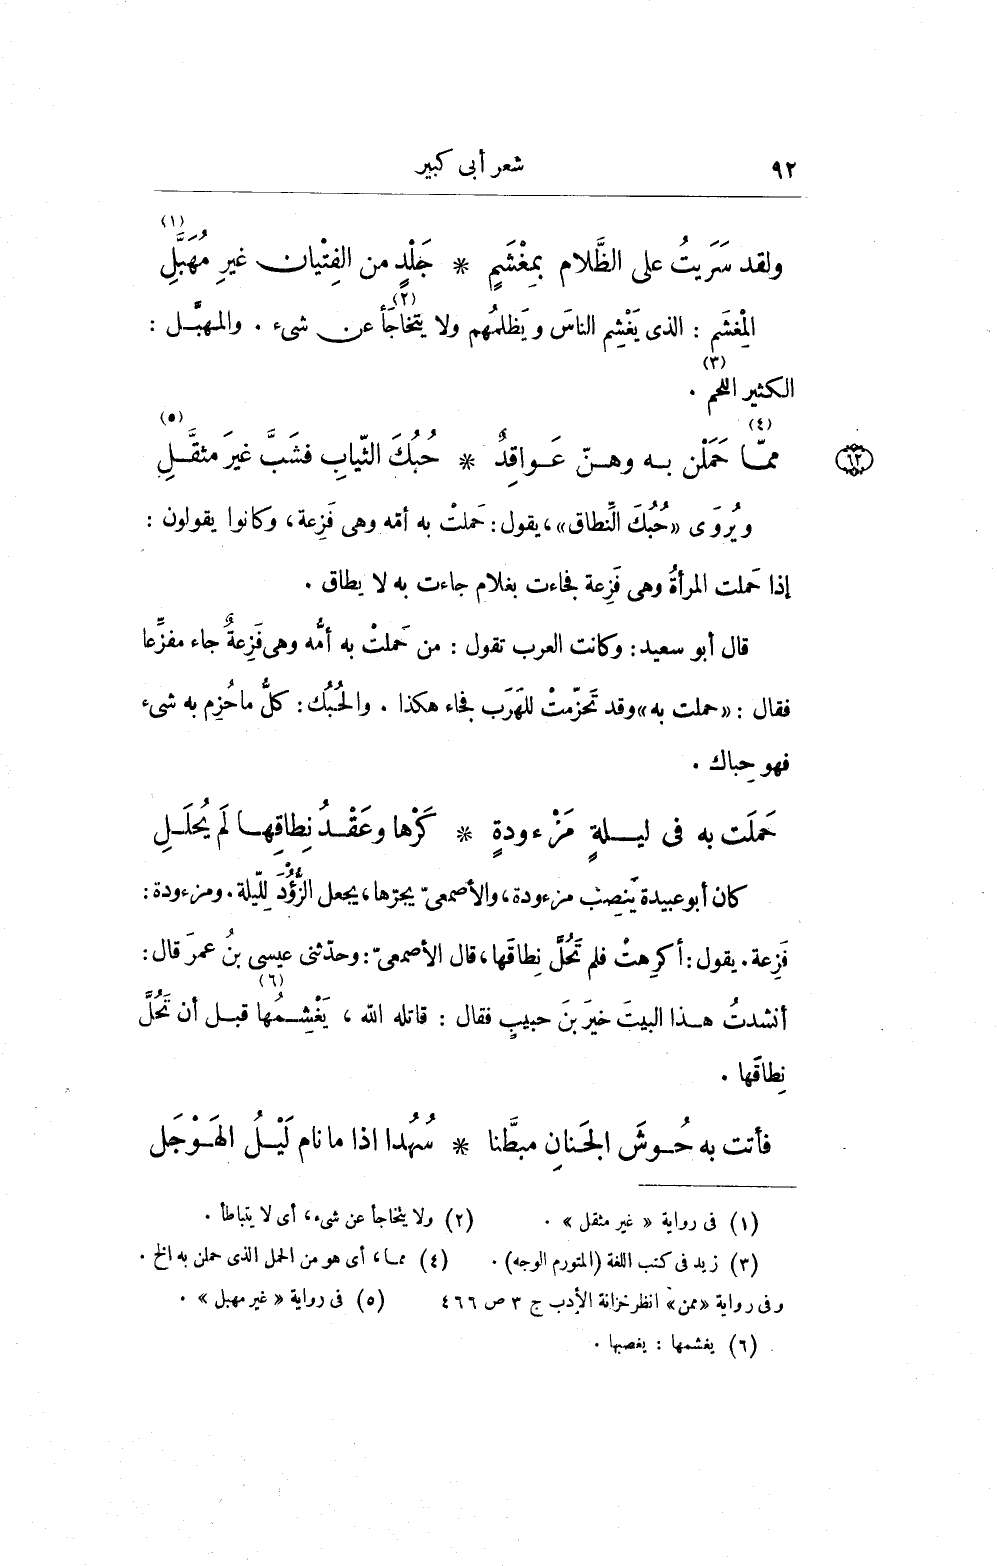 ٩٢
شعر أبى كبير
(١)
ولقد سَرَيتُ على الظَّلام بمِغْشَمٍ * جَلْدٍ من الفِتْيان غيرِ مُهَبَّلِ
(٢)
المِغْشَم : الذى يَغْشِم الناسَ ويَظلمُهم ولا يتَخاجَأ عن شىء . والمهبَّل :
(٣)
الكثير اللحم .
(٤) (٥)
ممّا حَمَلْن به وهنّ عَواقِدٌ * حُبُكَ الثّيابِ فشَبَّ غيرَ مثقَّلِ
٦٣
ويُروَى «حُبُكَ النِّطاق»، يقول: حَملتْ به أمّه وهى فَزِعة، وكانوا يقولون :
إذا حَملت المرأةُ وهى فَزِعة فجاءت بغلام جاءت به لا يطاق .
قال أبو سعيد: وكانت العرب تقول : من حَملتْ به أمُّه وهى فَزِعةٌ جاء مفزَّعا
فقال : «حملت به» وقد تَحَزّمتْ للهَرَب فجاء هكذا . والحُبُك: كلُّ ما حُزِم به شىء
فهو حِباك .
حَملَت به فى ليلةٍ مَزْءودةٍ * كَرْها وعَقْدُ نِطاقِها لَم يُحلَلِ
كان أبو عبيدة يَنصِب مزءودة، والأصمعىّ يجرّها، يجعل الزُّؤْدَ لِلّيلة. ومزءودة:
فَزِعة. يقول: أكرِهتْ فلم تَحُلَّ نِطاقَها، قال الأصمعىّ: وحدّثنى عيسى بنُ عمرَ قال:
(٦)
أنشدتُ هذا البيتَ خيرَ بنَ حبيبٍ فقال : قاتله الله ، يَغْشِمُها قبل أن تَحُلَّ
نِطاقَها .
فأتت به حُوشَ الجَنانِ مبطَّنا * سُهُدا اذا ما نام لَيْلُ الهَوْجَلِ
(١) فى رواية « غير مثقل » . (٢) ولا يتخاجأ عن شىء، أى لا يتباطأ .
(٣) زيد فى كتب اللغة (المتورم الوجه) . (٤) مما، أى هو من الحمل الذى حملن به الخ .
وفى رواية «ممن» انظر خزانة الأدب ج ٣ ص ٤٦٦ (٥) فى رواية « غير مهبل » .
(٦) يغشمها : يغصبها .